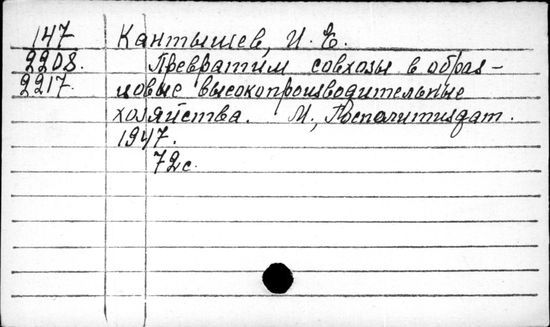 147 Кантышев, И. Е.
2208. Превратим совхозы в образ-
2217. цовые высокопроизводительные
хозяйства. М., Госполитиздат.
1947.
72 с.